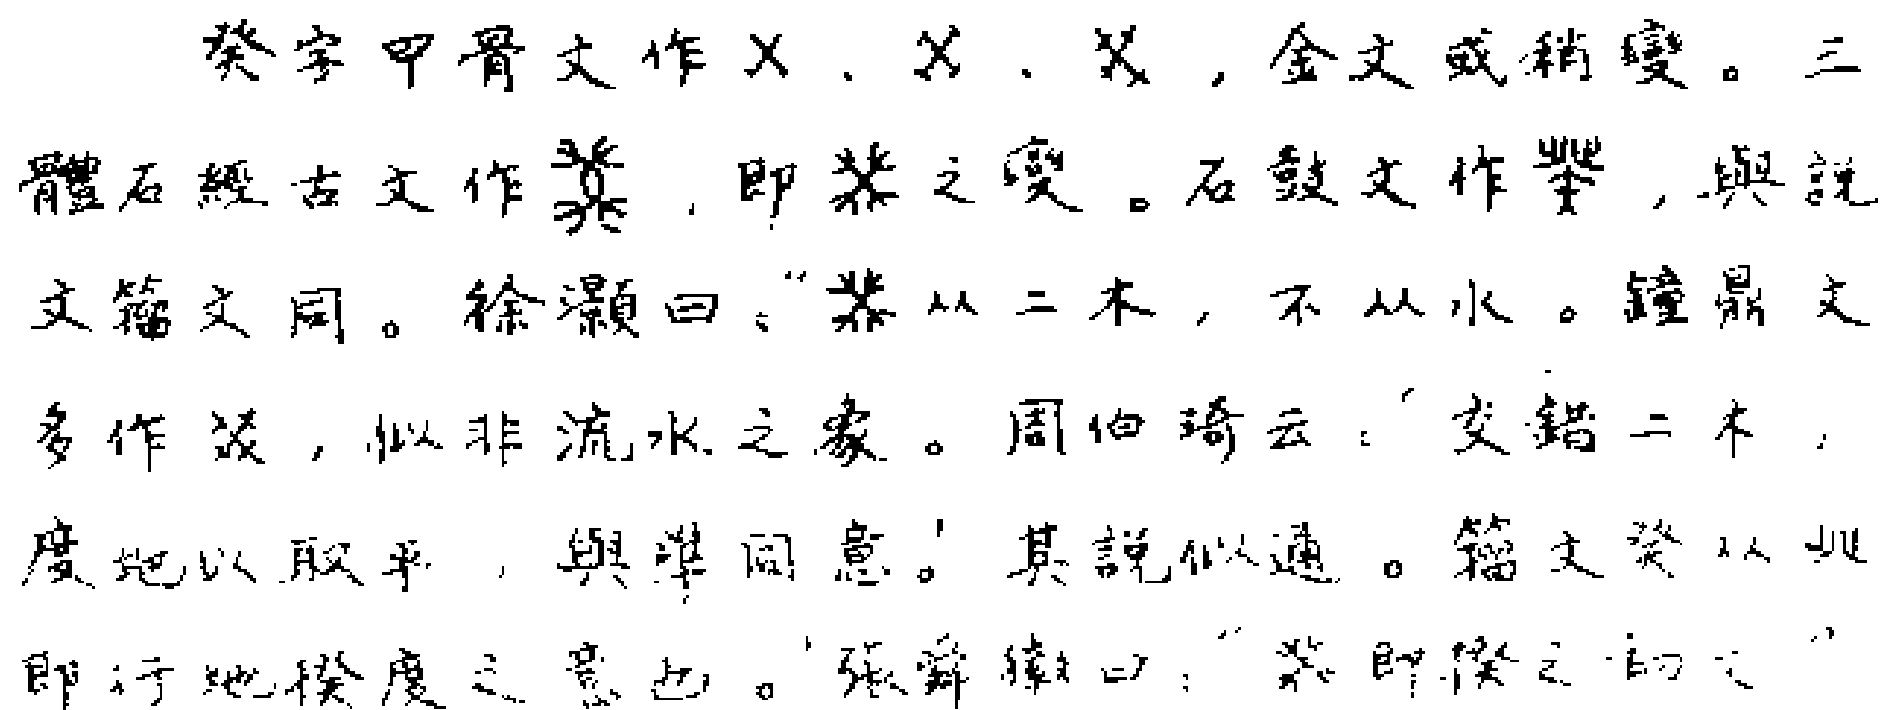 癸字甲骨文作X、、，金文或稍變。三
體石經古文作，即之變。石鼓文作，與說
文籀文同。徐灝曰：“从二木，不从水。鐘鼎文
多作，似非流水之象。周伯琦云：‘交錯二木，
度地以取平，與準同意。’其說似通。籀文癸从癶
即行地揆度之意也。’張舜徽曰：“即揆之初文”